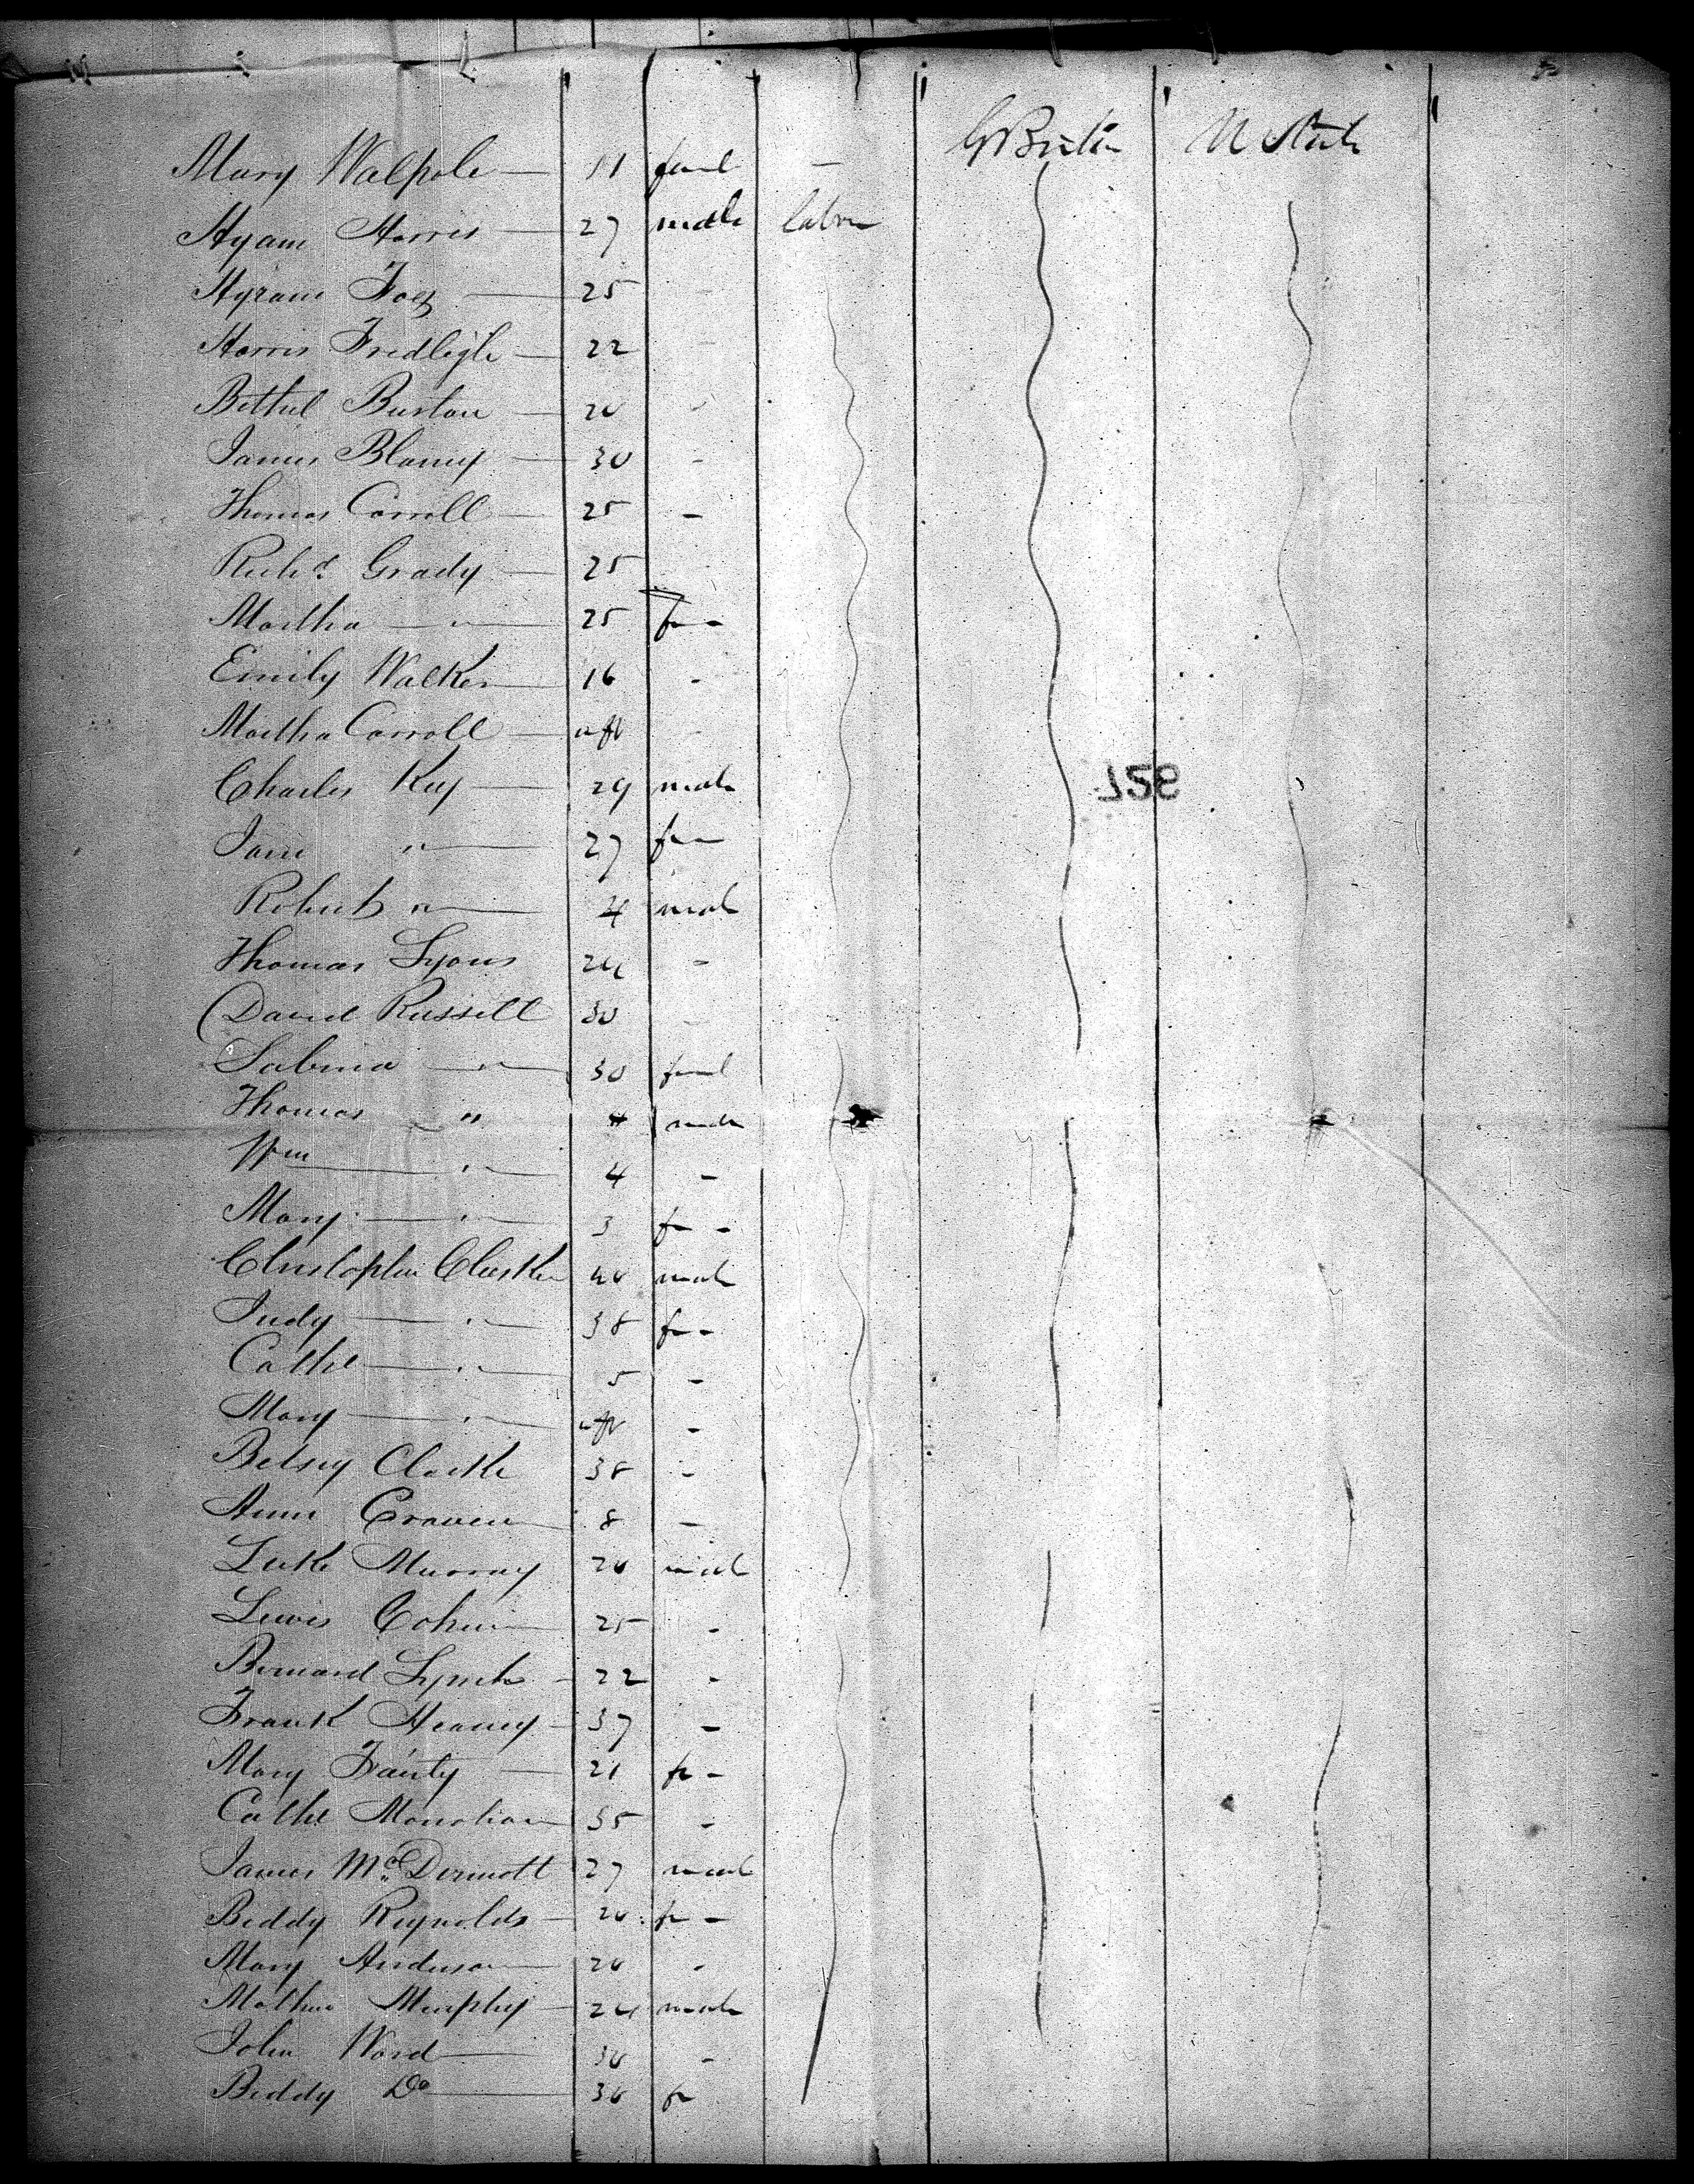 G Britn U State
Mary Walpole — 11 feml —
Hyam Harris — 27 male labor
Hyram Foex — 25
Harris Fredligh — 22
Bethel Burton — 20
James Blaney — 30 -
Thomas Carroll — 25 -
Richd Grady — 25
Martha — " — 25 fe -
Emily Walker — 16 -
Martha Carroll — inft
Charles Kay — 29 male
Jane " — 27 fe -
Robert " — 4 male
Thomas Lyons 24 -
David Russell 30
Sabina — " — 30 feml
Thomas " 4 male
Wm — " — 4 -
Mary — " — 3 fe -
Christopher Clarke 40 male
Judy — " — 38 fe -
Cathe — " — 5 -
Mary — " — inft -
Betsey Clarke 38 -
Anne Craven — 8 -
Luke Murray 20 male
Lewis Cohen — 25 -
Bernard Lynch - 22 -
Frank Heaney - 37 -
Mary Fainty — 21 fe -
Cathe Monahan 35 -
James McDermott 27 male
Biddy Reynolds - 20 fe -
Mary Anderson 20 -
Mathew Murphy - 24 male
John Ward — 30 -
Biddy Do — 30 fe